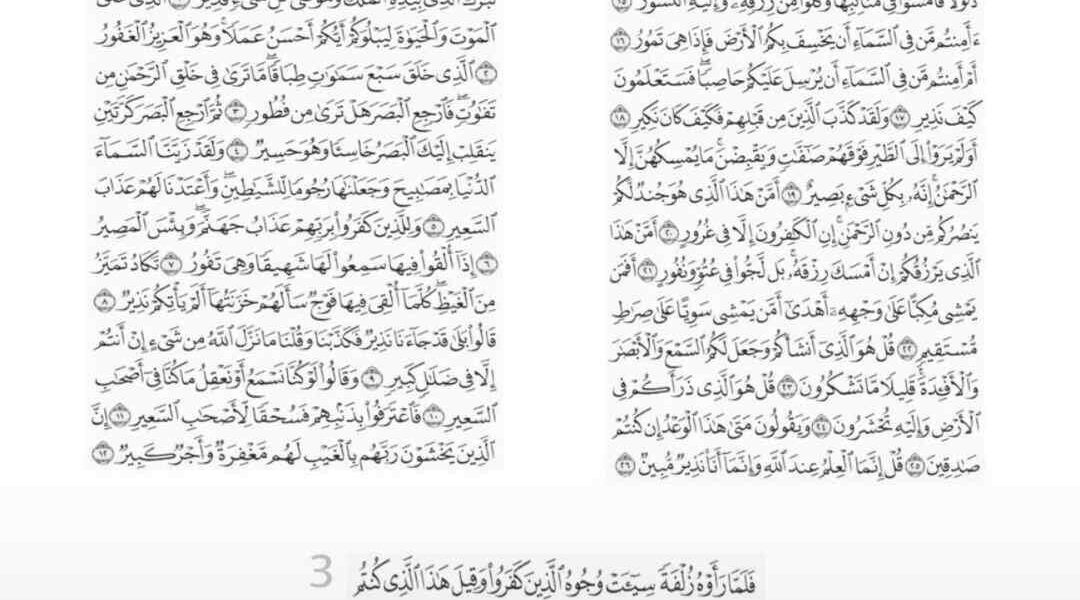 تَبَٰرَكَ ٱلَّذِى بِيَدِهِ ٱلْمُلْكُ وَهُوَ عَلَىٰ كُلِّ شَىْءٍ قَدِيرٌ ١ ٱلَّذِى خَلَقَ
ٱلْمَوْتَ وَٱلْحَيَوٰةَ لِيَبْلُوَكُمْ أَيُّكُمْ أَحْسَنُ عَمَلًا ۚ وَهُوَ ٱلْعَزِيزُ ٱلْغَفُورُ
٢ ٱلَّذِى خَلَقَ سَبْعَ سَمَٰوَٰتٍ طِبَاقًا ۖ مَّا تَرَىٰ فِى خَلْقِ ٱلرَّحْمَٰنِ مِن
تَفَٰوُتٍ ۖ فَٱرْجِعِ ٱلْبَصَرَ هَلْ تَرَىٰ مِن فُطُورٍ ٣ ثُمَّ ٱرْجِعِ ٱلْبَصَرَ كَرَّتَيْنِ
يَنقَلِبْ إِلَيْكَ ٱلْبَصَرُ خَاسِئًا وَهُوَ حَسِيرٌ ٤ وَلَقَدْ زَيَّنَّا ٱلسَّمَآءَ
ٱلدُّنْيَا بِمَصَٰبِيحَ وَجَعَلْنَٰهَا رُجُومًا لِّلشَّيَٰطِينِ ۖ وَأَعْتَدْنَا لَهُمْ عَذَابَ
ٱلسَّعِيرِ ٥ وَلِلَّذِينَ كَفَرُوا۟ بِرَبِّهِمْ عَذَابُ جَهَنَّمَ ۖ وَبِئْسَ ٱلْمَصِيرُ
٦ إِذَآ أُلْقُوا۟ فِيهَا سَمِعُوا۟ لَهَا شَهِيقًا وَهِىَ تَفُورُ ٧ تَكَادُ تَمَيَّزُ
مِنَ ٱلْغَيْظِ ۖ كُلَّمَآ أُلْقِىَ فِيهَا فَوْجٌ سَأَلَهُمْ خَزَنَتُهَآ أَلَمْ يَأْتِكُمْ نَذِيرٌ ٨
قَالُوا۟ بَلَىٰ قَدْ جَآءَنَا نَذِيرٌ فَكَذَّبْنَا وَقُلْنَا مَا نَزَّلَ ٱللَّهُ مِن شَىْءٍ إِنْ أَنتُمْ
إِلَّا فِى ضَلَٰلٍ كَبِيرٍ ٩ وَقَالُوا۟ لَوْ كُنَّا نَسْمَعُ أَوْ نَعْقِلُ مَا كُنَّا فِىٓ أَصْحَٰبِ
ٱلسَّعِيرِ ١٠ فَٱعْتَرَفُوا۟ بِذَنۢبِهِمْ فَسُحْقًا لِّأَصْحَٰبِ ٱلسَّعِيرِ ١١ إِنَّ
ٱلَّذِينَ يَخْشَوْنَ رَبَّهُم بِٱلْغَيْبِ لَهُم مَّغْفِرَةٌ وَأَجْرٌ كَبِيرٌ ١٢
ذَلُولًا فَٱمْشُوا۟ فِى مَنَاكِبِهَا وَكُلُوا۟ مِن رِّزْقِهِۦ ۖ وَإِلَيْهِ ٱلنُّشُورُ ١٥
ءَأَمِنتُم مَّن فِى ٱلسَّمَآءِ أَن يَخْسِفَ بِكُمُ ٱلْأَرْضَ فَإِذَا هِىَ تَمُورُ ١٦
أَمْ أَمِنتُم مَّن فِى ٱلسَّمَآءِ أَن يُرْسِلَ عَلَيْكُمْ حَاصِبًا ۖ فَسَتَعْلَمُونَ
كَيْفَ نَذِيرِ ١٧ وَلَقَدْ كَذَّبَ ٱلَّذِينَ مِن قَبْلِهِمْ فَكَيْفَ كَانَ نَكِيرِ ١٨
أَوَلَمْ يَرَوْا۟ إِلَى ٱلطَّيْرِ فَوْقَهُمْ صَٰٓفَّٰتٍ وَيَقْبِضْنَ ۚ مَا يُمْسِكُهُنَّ إِلَّا
ٱلرَّحْمَٰنُ ۚ إِنَّهُۥ بِكُلِّ شَىْءٍۭ بَصِيرٌ ١٩ أَمَّنْ هَٰذَا ٱلَّذِى هُوَ جُندٌ لَّكُمْ
يَنصُرُكُم مِّن دُونِ ٱلرَّحْمَٰنِ ۚ إِنِ ٱلْكَٰفِرُونَ إِلَّا فِى غُرُورٍ ٢٠ أَمَّنْ هَٰذَا
ٱلَّذِى يَرْزُقُكُمْ إِنْ أَمْسَكَ رِزْقَهُۥ ۚ بَل لَّجُّوا۟ فِى عُتُوٍّ وَنُفُورٍ ٢١ أَفَمَن
يَمْشِى مُكِبًّا عَلَىٰ وَجْهِهِۦٓ أَهْدَىٰٓ أَمَّن يَمْشِى سَوِيًّا عَلَىٰ صِرَٰطٍ
مُّسْتَقِيمٍ ٢٢ قُلْ هُوَ ٱلَّذِىٓ أَنشَأَكُمْ وَجَعَلَ لَكُمُ ٱلسَّمْعَ وَٱلْأَبْصَٰرَ
وَٱلْأَفْـِٔدَةَ ۖ قَلِيلًا مَّا تَشْكُرُونَ ٢٣ قُلْ هُوَ ٱلَّذِى ذَرَأَكُمْ فِى
ٱلْأَرْضِ وَإِلَيْهِ تُحْشَرُونَ ٢٤ وَيَقُولُونَ مَتَىٰ هَٰذَا ٱلْوَعْدُ إِن كُنتُمْ
صَٰدِقِينَ ٢٥ قُلْ إِنَّمَا ٱلْعِلْمُ عِندَ ٱللَّهِ وَإِنَّمَآ أَنَا۠ نَذِيرٌ مُّبِينٌ ٢٦
3
فَلَمَّا رَأَوْهُ زُلْفَةً سِيٓـَٔتْ وُجُوهُ ٱلَّذِينَ كَفَرُوا۟ وَقِيلَ هَٰذَا ٱلَّذِى كُنتُم